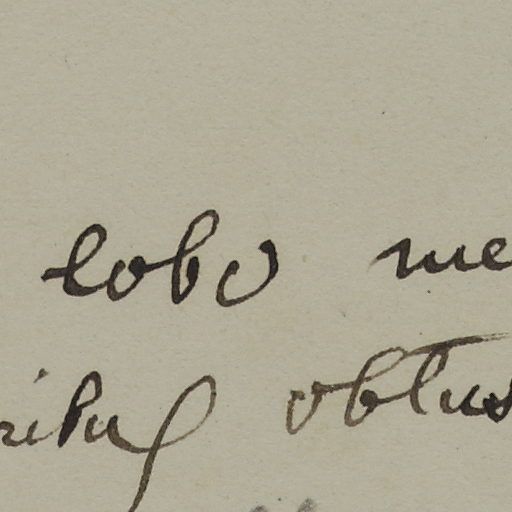 lobo me
ribus obtus